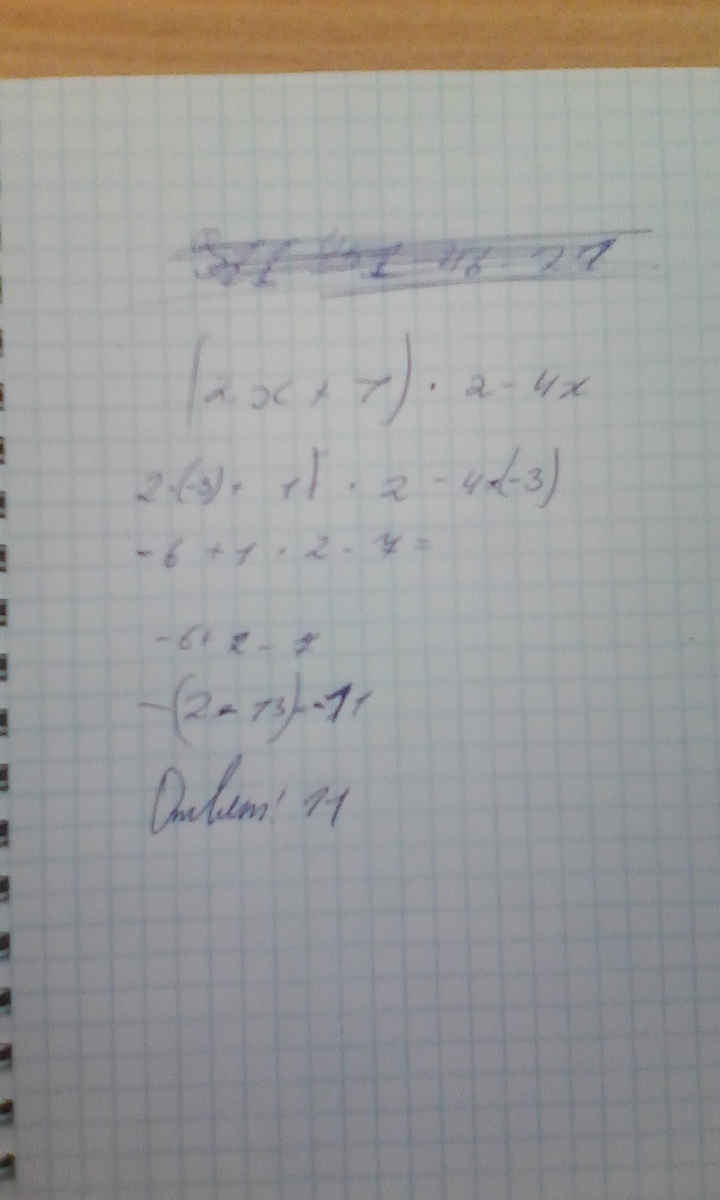 (2x + 1) · 2 - 4x
2·(-3) + 1) · 2 - 4·(-3)
-6 + 1 · 2 - 7 =
-6 + 2 - 7
-(2 - 13) - 11
Ответ: 11